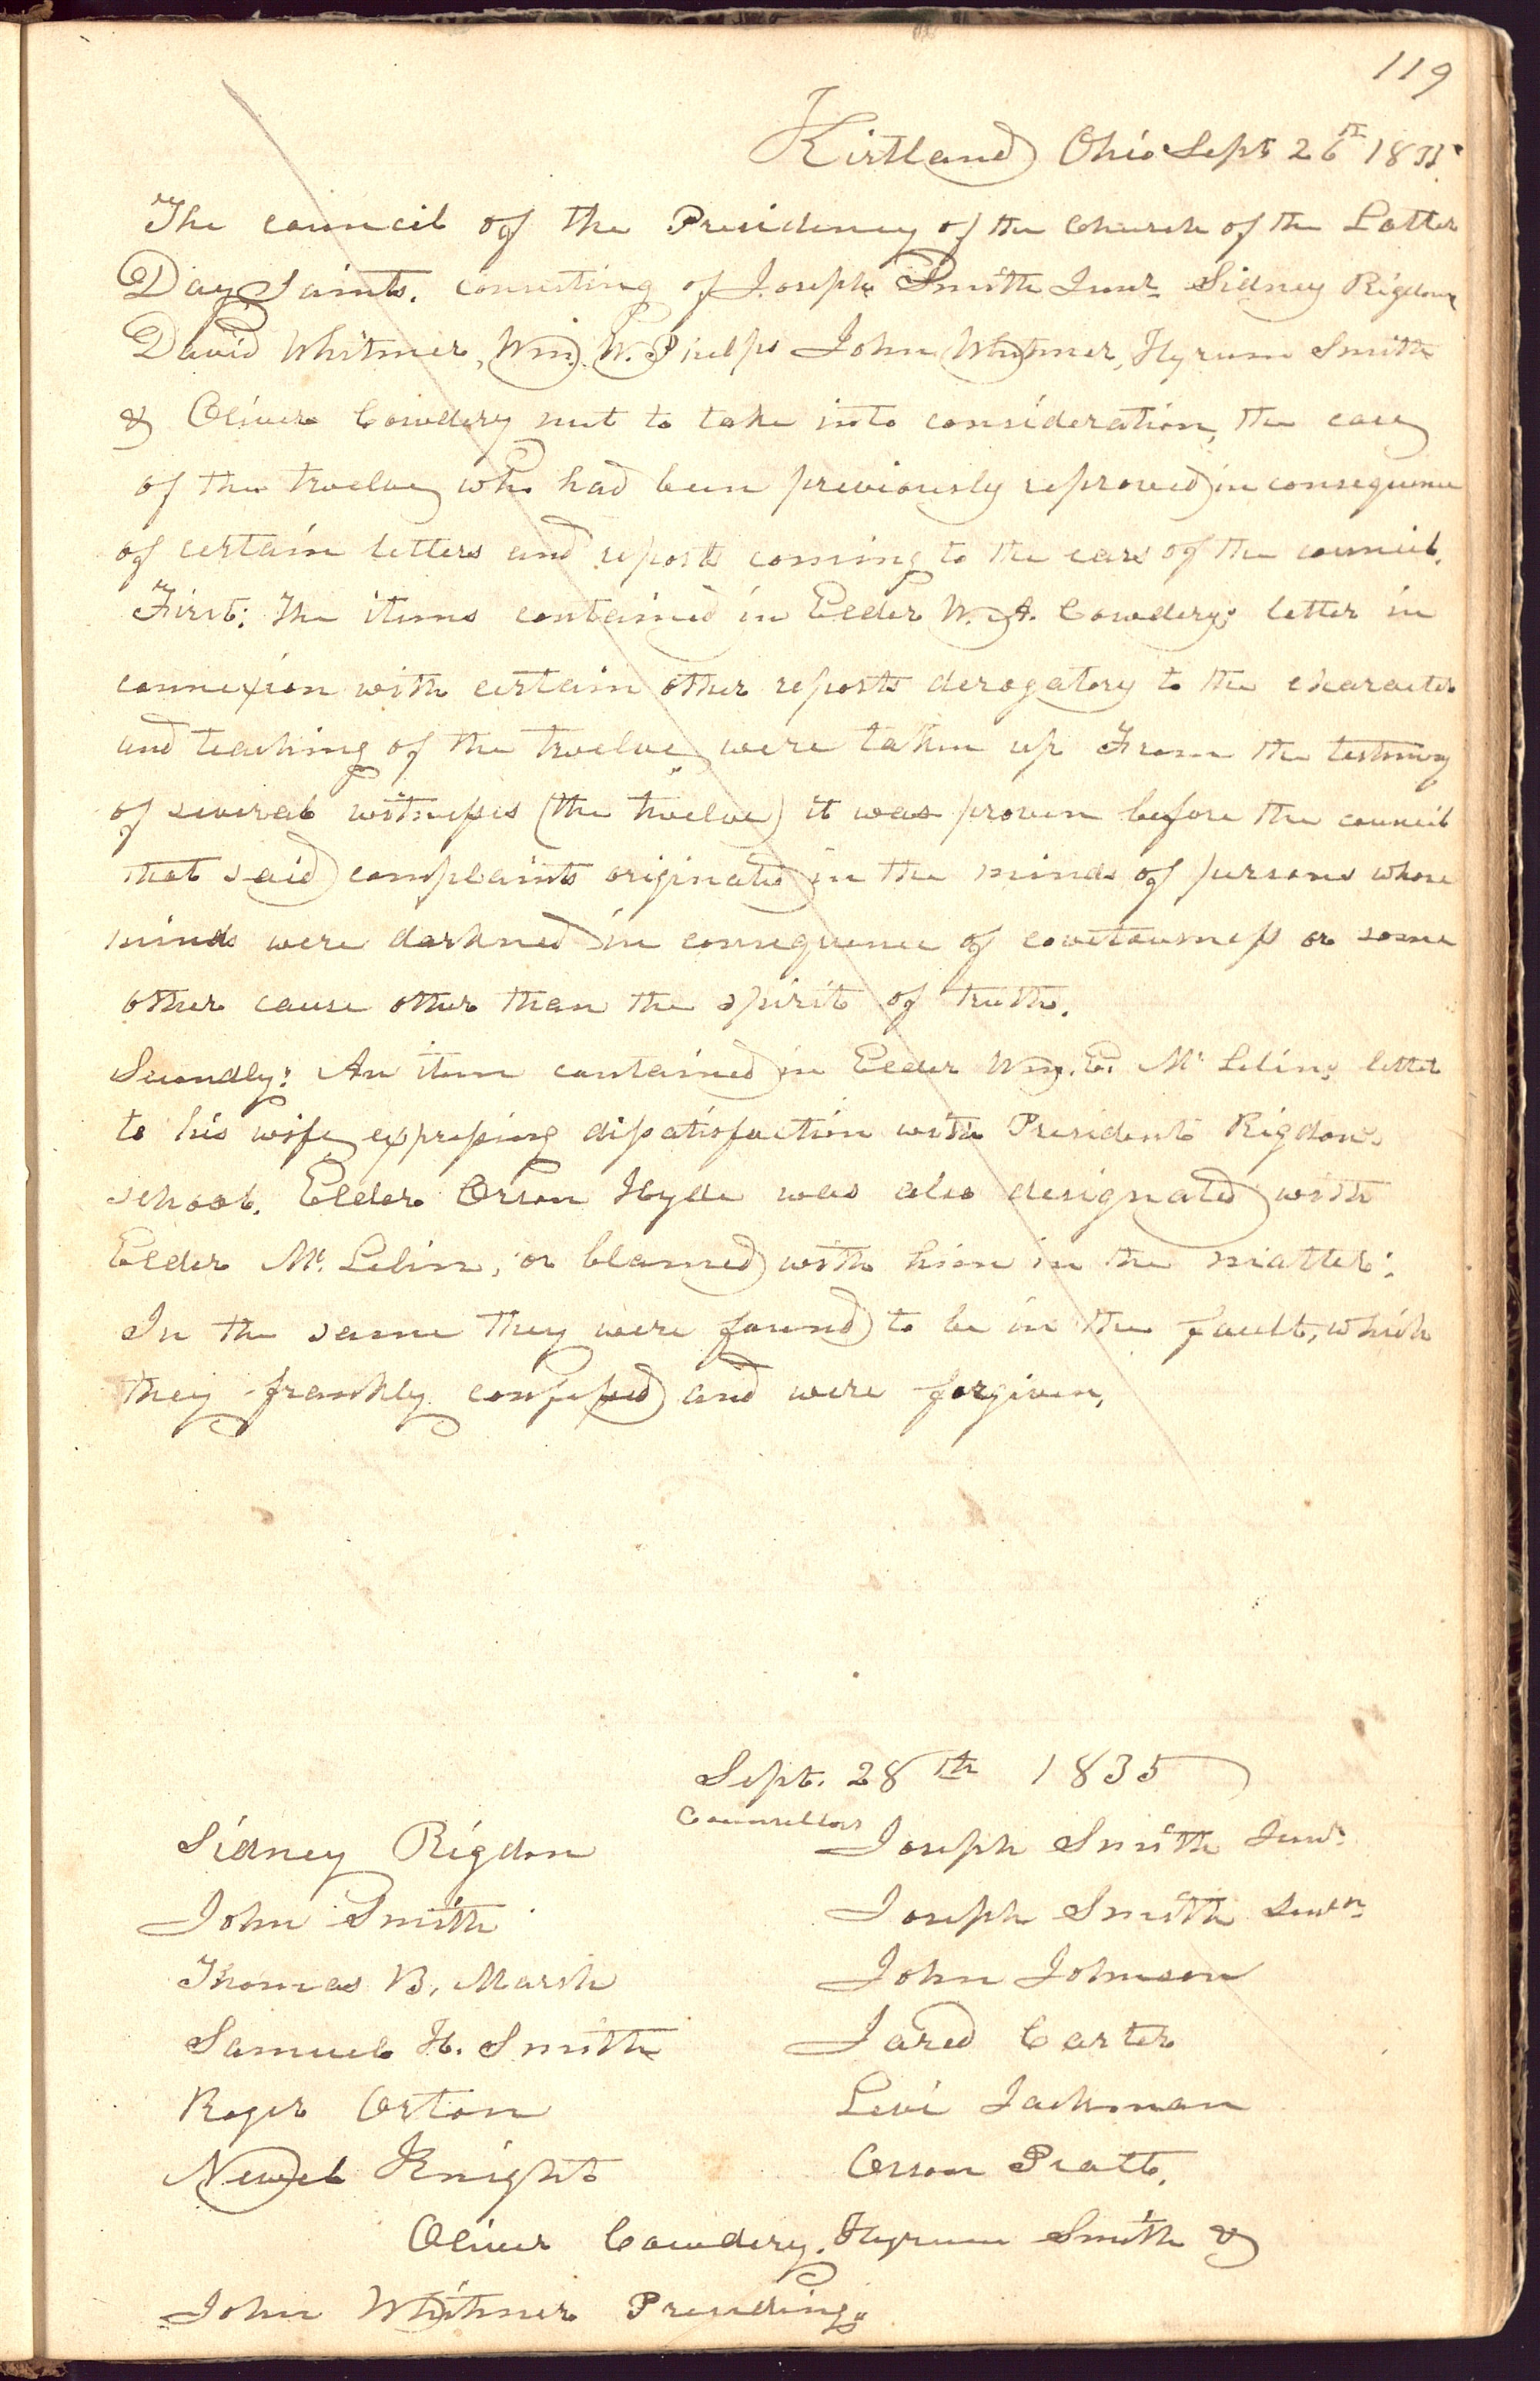 119
Kirtland Ohio Sept 26th 1835.
The council of the Presidency of the Church of the Latter
Day Saints. consisting of Joseph Smith Junr. Sidney Rigdon
David Whitmer, Wm. W. Phelps John Whitmer, Hyrum Smith
& Oliver Cowdery met to take into consideration, the case
of the twelve who had been previously reproved in consequence
of certain letters and reports coming to the ears of the council.
First: The items contained in Elder W. A. Cowdery's letter in
connexion with certain other reports derogatory to the character
and teaching of the twelve were taken up From the testimony
of several witnesses (the twelve) it was proven before the council
that said complaints originated in the minds of persons whose
minds were darkned in consequence of covetousness or some
other cause other than the spirit of truth.
Secondly: An item contained in Elder Wm. E. Mc Lelin's letter
to his wife expressing disatisfaction with President Rigdon's
school. Elder Orson Hyde was also designated with
Elder Mc. Lelin, or blamed with him in the matter:
In the same they were found to be in the fault, which
they frankly confessed and were forgiven,
Sept. 28th 1835
Counsellors
Sidney Rigdon Joseph Smith Junr.
John Smith Joseph Smith Senr.
Thomas B. Marsh John Johnson
Samuel H. Smith Jared Carter
Roger Orton Levi Jackman
Newel Knight Orson Pratt.
Oliver Cowdery. Hyrum Smith &
John Whitmer Presiding.